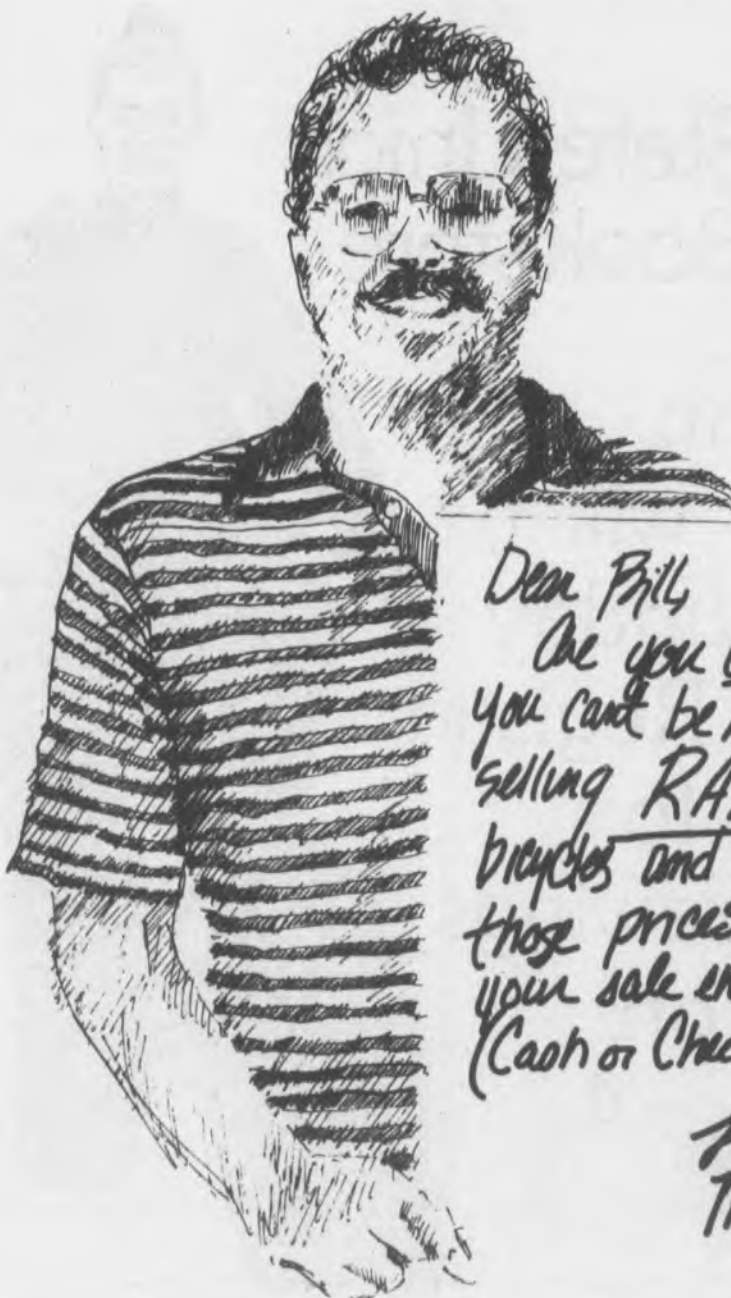 Dear Bill,
Are you
you can't be
selling RA
bicycles and
those prices
your sale en
(Cash or Chec